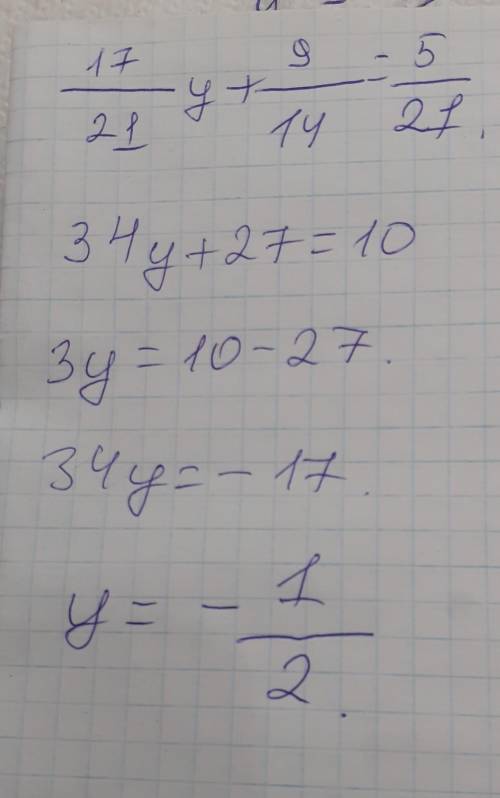 17/21 y + 9/14 = 5/21.
34y + 27 = 10
3y = 10 - 27.
34y = - 17.
y = - 1/2.